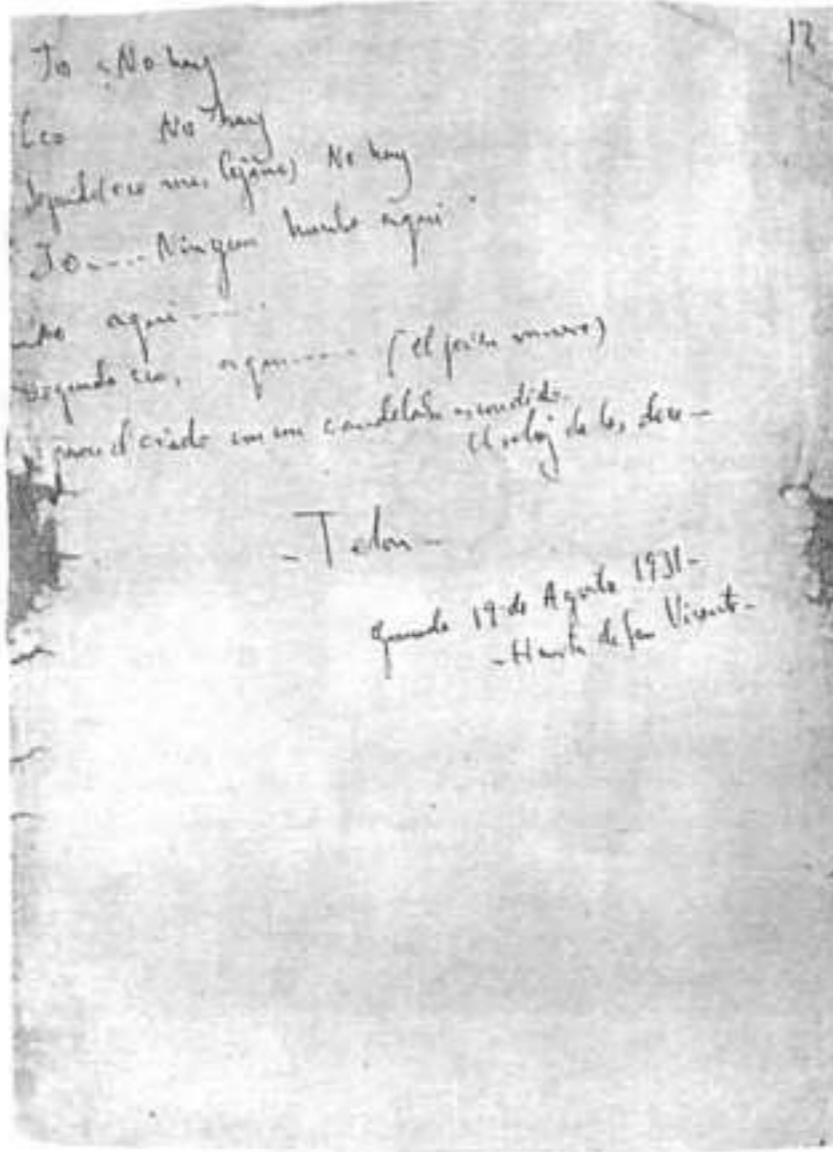 12
Jo ¿No hay
Eco No hay
Segundo (eco mas lejano) No hay
Jo..... Ningun hombre aqui?
aqui......
Segundo eco, aqui...... (El joven muere)
pasa el criado con un candelabro encendido.
El reloj da las doce-
-Telon-
Granada 19 de Agosto 1931-
-Huerta de San Vicente-